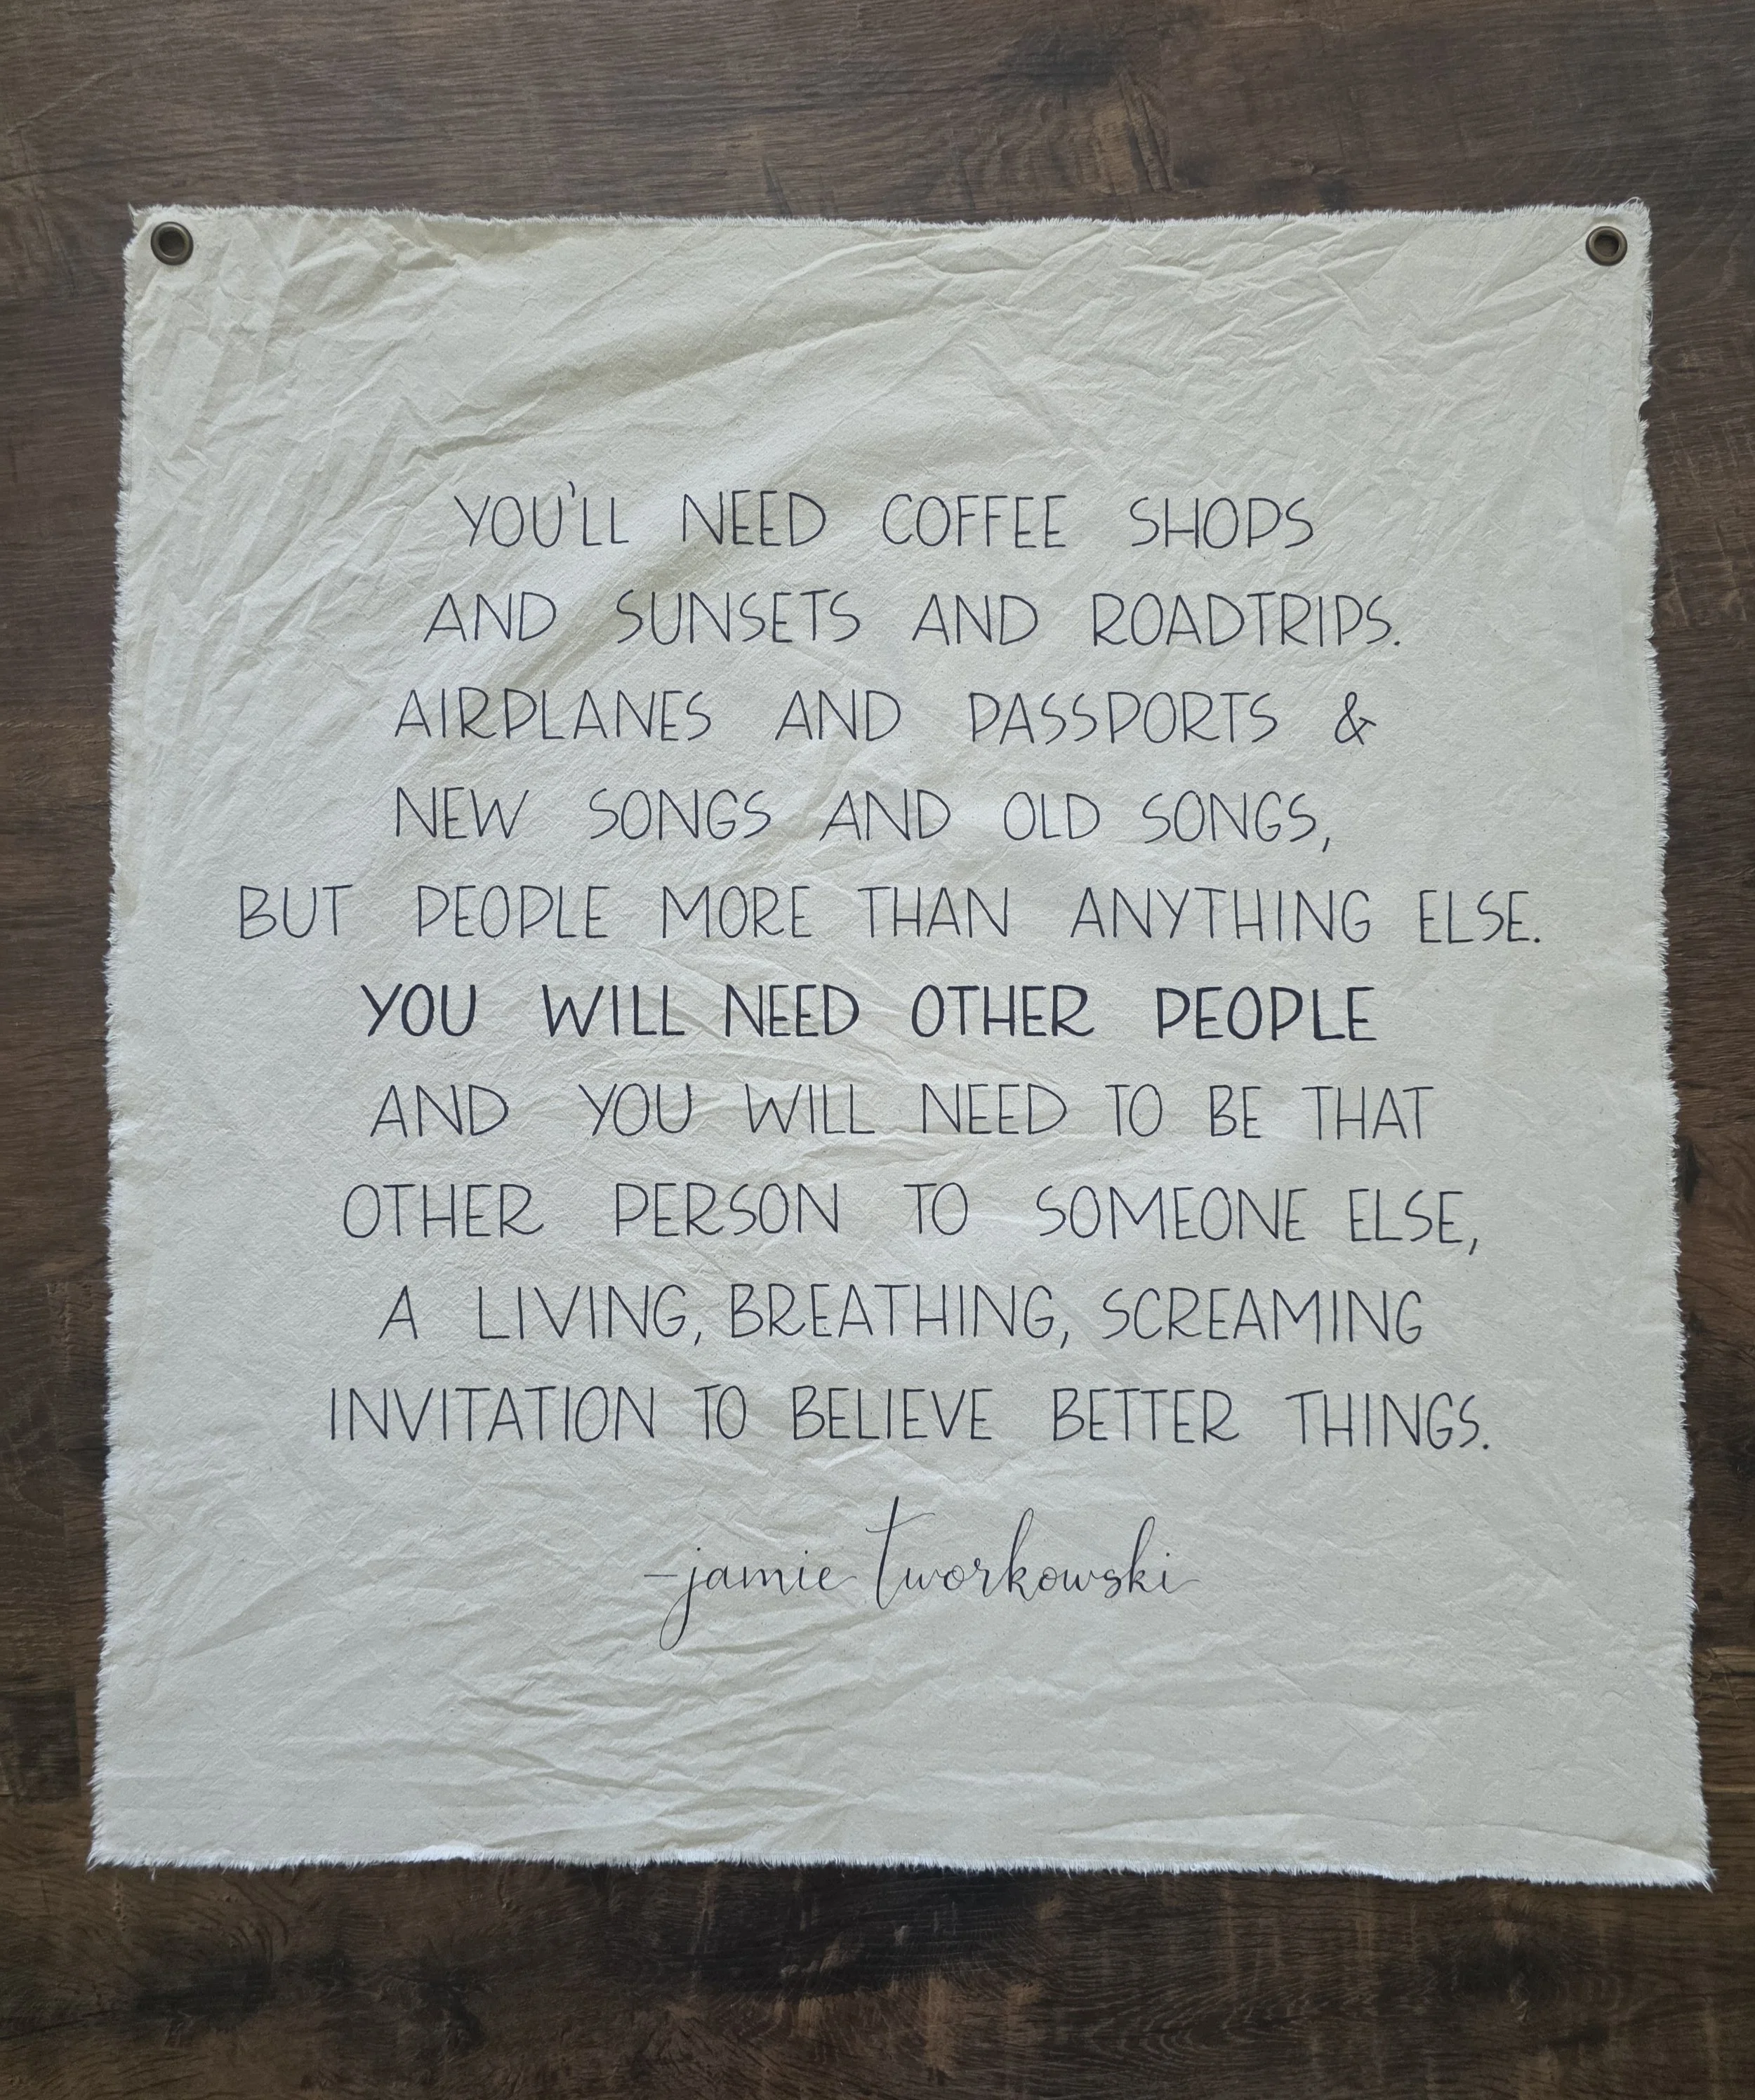 YOU'LL NEED COFFEE SHOPS
AND SUNSETS AND ROADTRIPS.
AIRPLANES AND PASSPORTS &
NEW SONGS AND OLD SONGS,
BUT PEOPLE MORE THAN ANYTHING ELSE.
YOU WILL NEED OTHER PEOPLE
AND YOU WILL NEED TO BE THAT
OTHER PERSON TO SOMEONE ELSE,
A LIVING, BREATHING, SCREAMING
INVITATION TO BELIEVE BETTER THINGS.
-jamie tworkowski